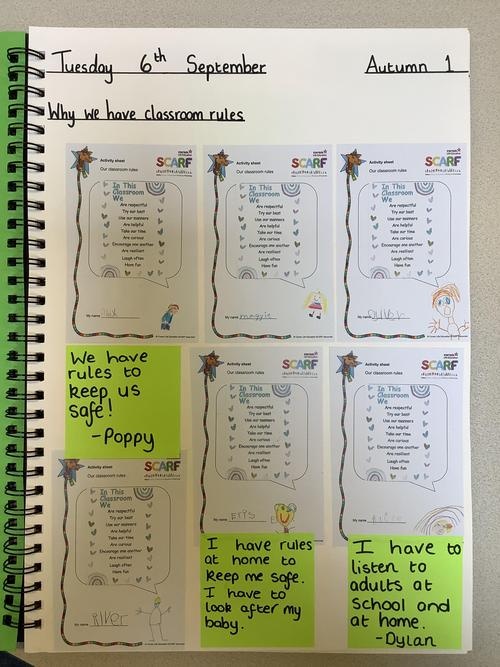 Tuesday 6th September
Autumn 1
Why we have classroom rules
Activity sheet
SCARF
Our classroom rules
In This
Classroom
We
Are respectful
Try our best
Use our manners
Are helpful
Take our time
Are curious
Encourage one another
Are resilient
Laugh often
Have fun
My name
Activity sheet
SCARF
Our classroom rules
In This
Classroom
We
Are respectful
Try our best
Use our manners
Are helpful
Take our time
Are curious
Encourage one another
Are resilient
Laugh often
Have fun
My name maggie
Activity sheet
SCARF
Our classroom rules
In This
Classroom
We
Are respectful
Try our best
Use our manners
Are helpful
Take our time
Are curious
Encourage one another
Are resilient
Laugh often
Have fun
My name
We have
rules to
keep us
safe!
-Poppy
Activity sheet
SCARF
Our classroom rules
In This
Classroom
We
Are respectful
Try our best
Use our manners
Are helpful
Take our time
Are curious
Encourage one another
Are resilient
Laugh often
Have fun
My name
Activity sheet
SCARF
Our classroom rules
In This
Classroom
We
Are respectful
Try our best
Use our manners
Are helpful
Take our time
Are curious
Encourage one another
Are resilient
Laugh often
Have fun
My name
Activity sheet
SCARF
Our classroom rules
In This
Classroom
We
Are respectful
Try our best
Use our manners
Are helpful
Take our time
Are curious
Encourage one another
Are resilient
Laugh often
Have fun
My name
I have rules
at home to
keep me safe.
I have to
look after my
baby.
I have to
listen to
adults at
school and
at home.
-Dylan